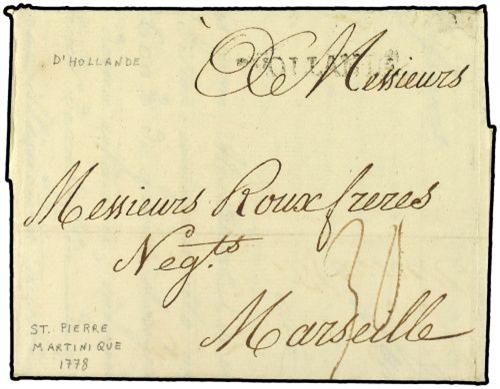 D'HOLLANDE
D'HOLLANDE
A Messieurs
Messieurs Roux freres
Neg.ts
30
Marseille
ST. PIERRE
MARTINIQUE
1778